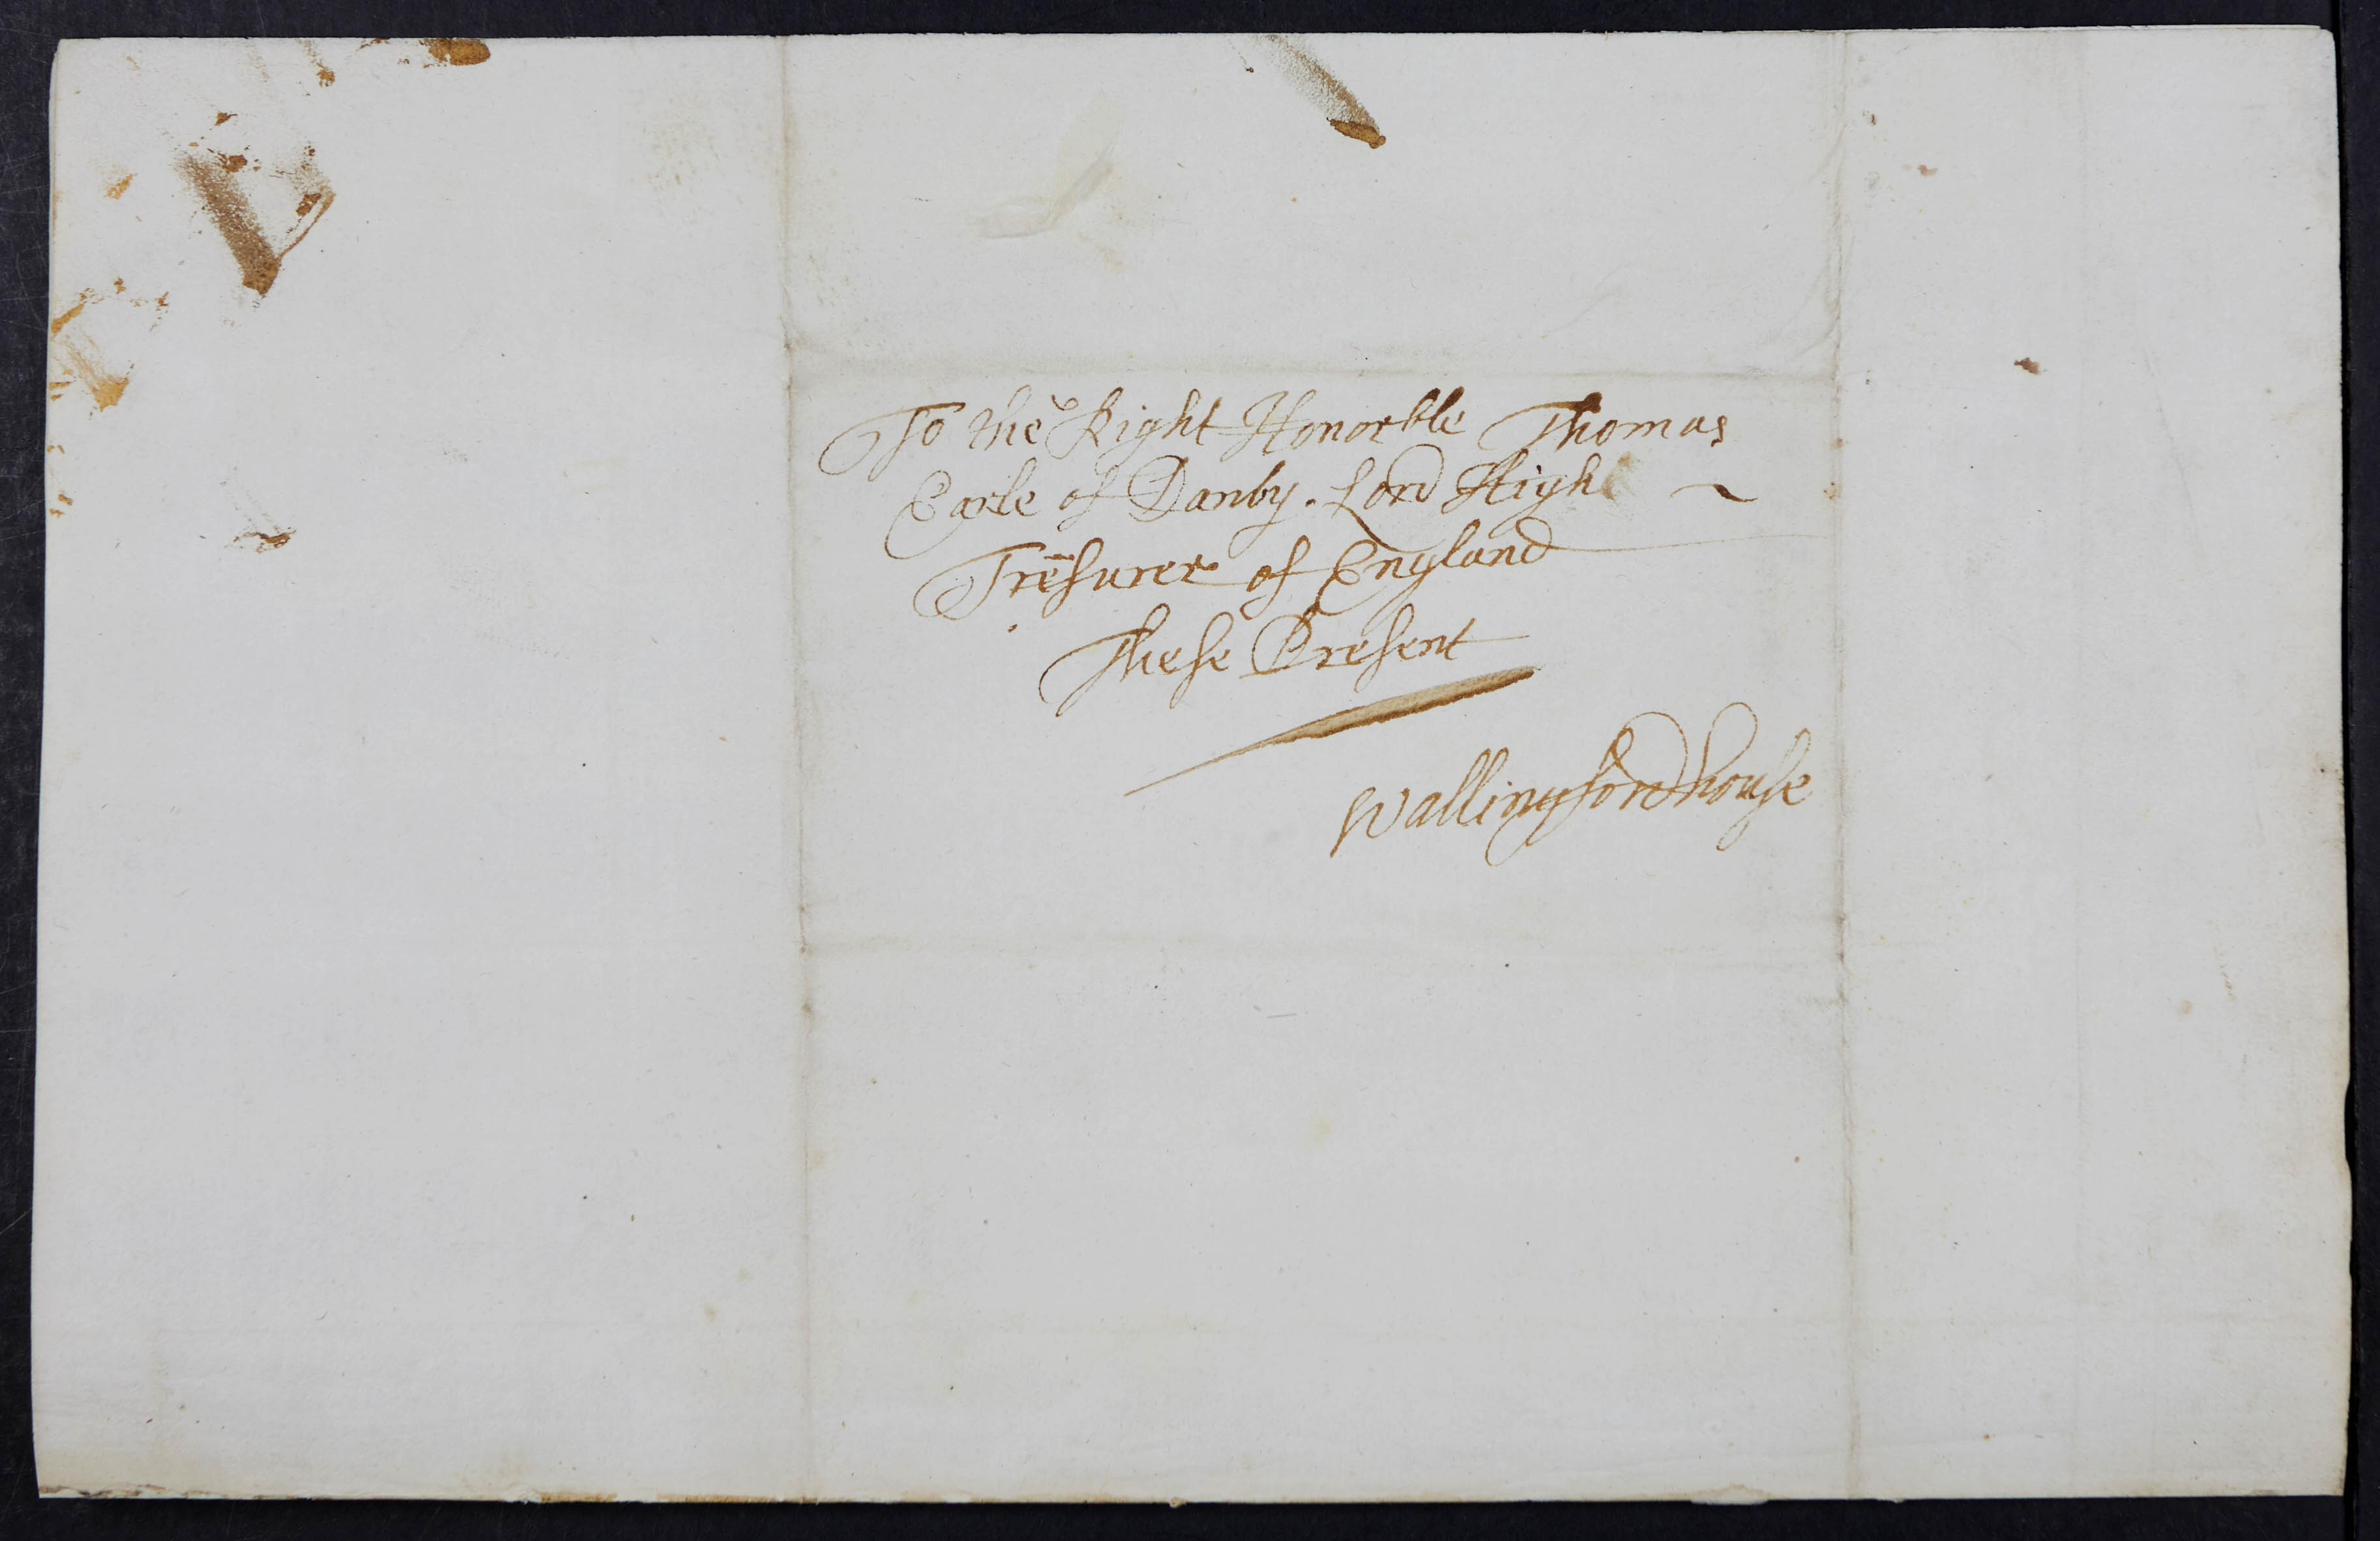 To the Right Honorble Thomas
Earle of Danby. Lord High ~
Trēsurer of England
These Present
Wallingford house